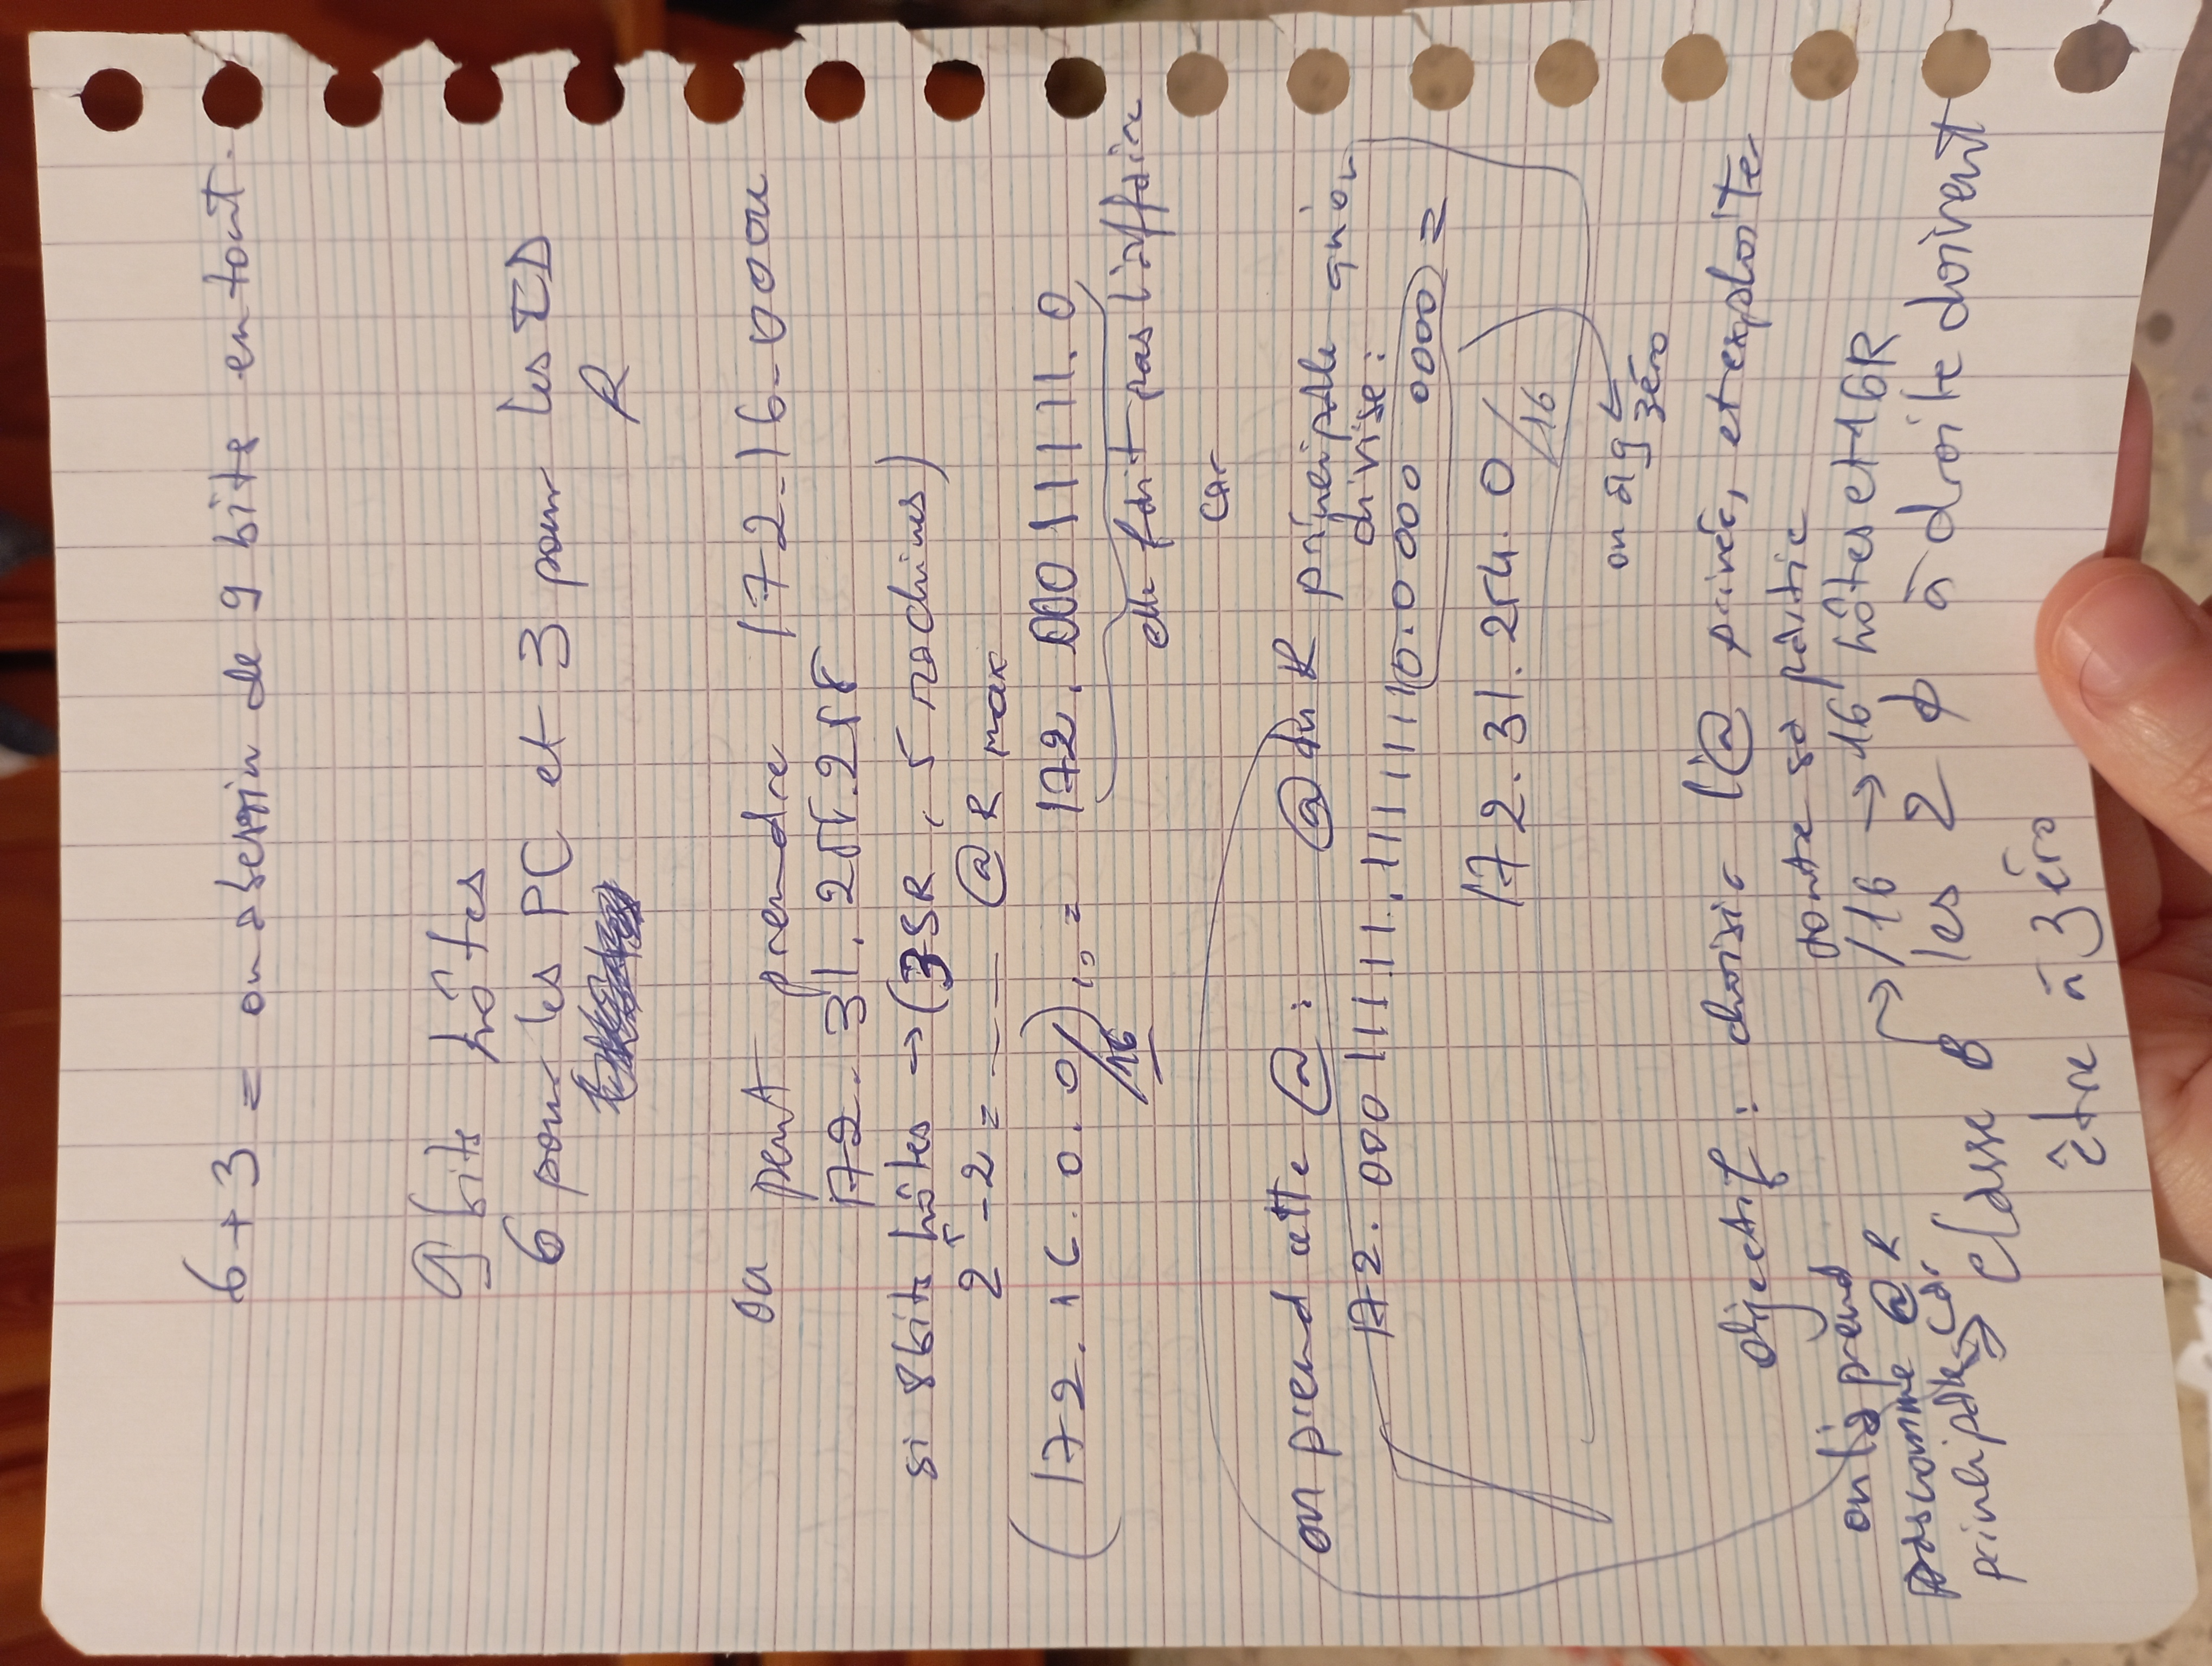 6 + 3 = on a besoin de 9 bits en tout.
9 bits hôtes
6 pour les PC et 3 pour les ID
R
on peut prendre 172.16.0.0 ou
172.31.255.255
si 8 bits hôtes → (3 SR, 5 machines)
2^5 - 2 = _ _ @ R max
(172.16.0.0/16)10 = 172.00011111.0
elle fait pas l'affaire
car
on prend cette @ : @ du R principale qu'on
divise :
172.00011111.11111110.0000 0000 =
172.31.254.0/16
on a 9
zéro
objectif : choisir l'@ privée, et exploiter
toute sa partie
/16 → 16 hôtes et 16R
on la prend
pas comme @ R
principale car
→ classe B les 2 à droite doivent
être à zéro